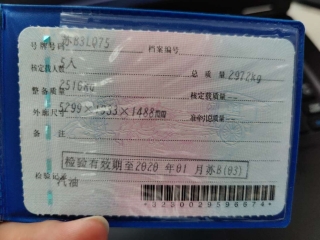 号牌号码 苏B3LQ75 档案编号
核定载人数 5人 总质量 2972kg
整备质量 2516kg 核定载质量 --
外廓尺寸 5299×1933×1488mm 准牵引总质量 --
备注
检验有效期至2020年01月苏B(03)
检验记录
汽油